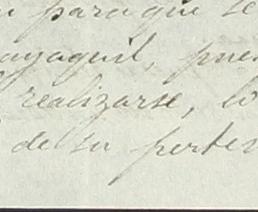 para que se
ayaquil, pues
realizarse, lo
de su perten